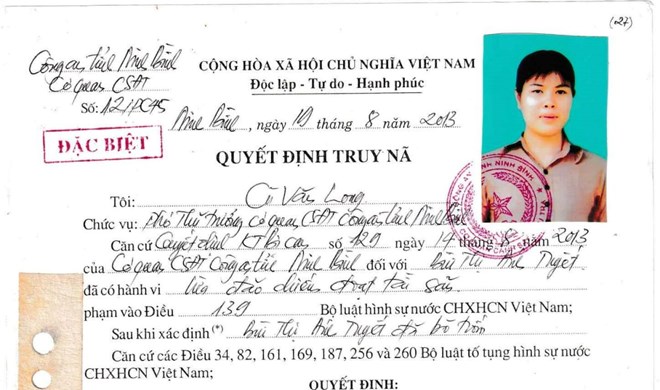 (127)
Công an tỉnh Ninh Bình
Cơ quan CSĐT
CỘNG HÒA XÃ HỘI CHỦ NGHĨA VIỆT NAM
Độc lập - Tự do - Hạnh phúc
Số: 12/PC45
Ninh Bình, ngày 19 tháng 8 năm 2013
ĐẶC BIỆT
QUYẾT ĐỊNH TRUY NÃ
Tôi: Cù Văn Long
Chức vụ: Phó Thủ trưởng Cơ quan CSĐT Công an tỉnh Ninh Bình
Căn cứ Quyết định KT Bị can số 129 ngày 14 tháng 8 năm 2013
của Cơ quan CSĐT Công an tỉnh Ninh Bình đối với Bùi Thị Tuyết
đã có hành vi lừa đảo chiếm đoạt tài sản
phạm vào Điều 139 Bộ luật hình sự nước CHXHCN Việt Nam;
Sau khi xác định (*) Bùi Thị Tuyết đã bỏ trốn
Căn cứ các Điều 34, 82, 161, 169, 187, 256 và 260 Bộ luật tố tụng hình sự nước
CHXHCN Việt Nam;
QUYẾT ĐỊNH: